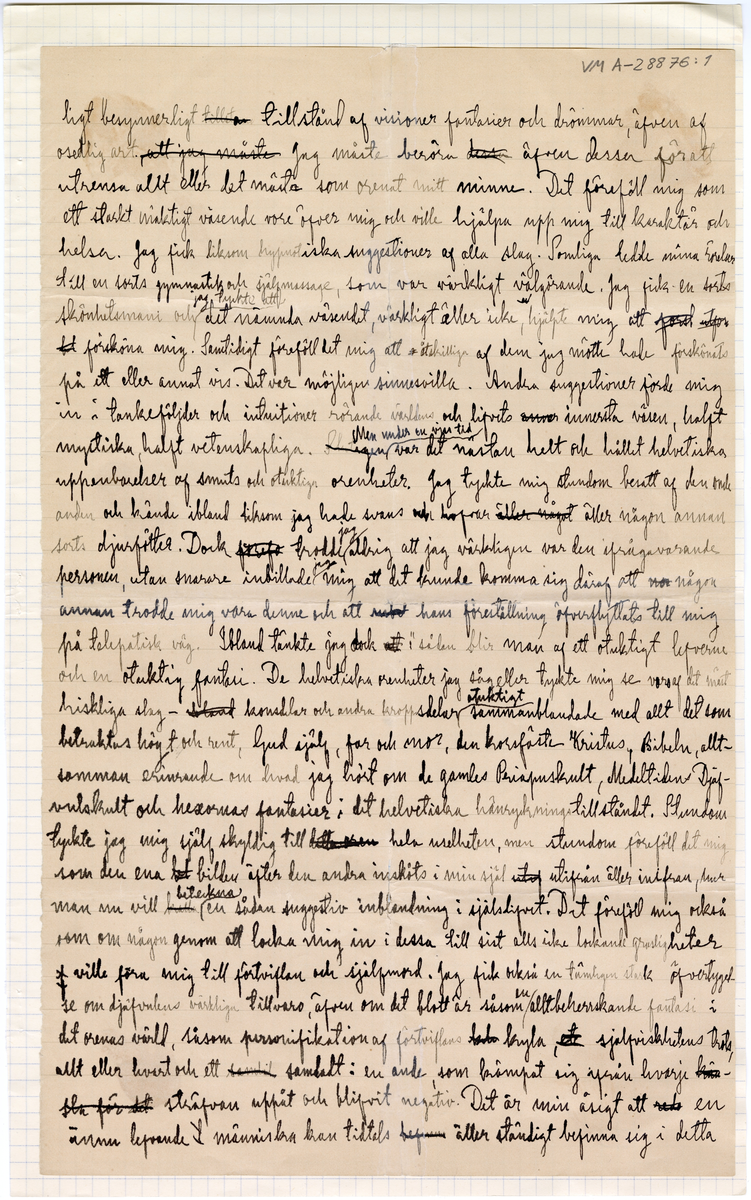 VM A-28876:1
ligt besynnerligt tillstånd af visioner fantasier och drömmar, äfven af
osedlig art. att jag måste Jag måste beröra dessa äfven dessa för att
utrensa allt eller det mästa som orenat mitt minne. Det föreföll mig som
ett starkt mäktigt väsende vore öfver mig och ville hjälpa upp mig till karaktär och
helsa. Jag fick liksom hypnotiska suggestioner af alla slag. Somliga ledde mina rörelser
till en sorts gymnastik och självmassage, som var värkligt välgörande. Jag fick en sorts
jag tyckte att
skönhetsmani och det nämnda väsendet, värkligt äller icke, hjälpte mig att först utför
försköna mig. Samtidigt föreföll det mig att åtskilliga af dem jag mötte hade förskönats
på ett eller annat vis. Det var möjligen sinnesvilla. Andra suggestioner förde mig
in i tankeföljder och intuitioner rörande världens och lifvets innersta väsen, halft
Men under en viss tid
mystiska, halft vetenskapliga. var det nästan helt och hållet helvetiska
uppenbarelser af smuts och otuktiga orenheter. Jag tyckte mig stundom besatt af den onde
anden och kände ibland liksom jag hade svans och hofvar äller något äller någon annan
jag
sorts djurfötter. Dock trodde aldrig att jag värkligen var den ifrågavarande
jag
personen, utan snarare inbillade mig att det kunde komma sig däraf att någon
annan trodde mig vara denne och att hans föreställning öfverflyttats till mig
på telepatisk väg. Ibland tänkte jag dock att i sådan blir man af ett otuktigt lefverne
och en otuktig fantasi. De helvetiska orenheter jag såg eller tyckte mig se voro af det mäst
otuktigt
hiskliga slag – bland könsdelar och andra kroppsdelar sammanblandade med allt det som
betraktas högt och rent, Gud själf, far och mor, den korsfäste Kristus, Bibeln, allt-
samman erinrande om hvad jag hört om de gamles Priapuskult, Medeltidens Djäf-
vulskult och hexornas fantasier i det helvetiska hänryckningstillståndet. Stundom
tyckte jag mig själf skyldig till hela uselheten, men stundom föreföll det mig
som den ena bilden äfter den andra insköts i min själ utifrån äller inifrån, hur
beteckna
man nu vill en sådan suggestiv inblandning i själslifvet. Det föreföll mig också
som om någon genom att locka mig in i dessa till sist alls icke lockande grasligheter
ville föra mig till förtviflan och själfmord. Jag fick också en tämligen stark öfvertygel-
en
se om djäfvulens värkliga tillvaro, äfven om det blott är såsom alltbeherrskande fantasi i
det orenas värld, såsom personifikation af förtviflans kyla, själfviskhetens trots,
allt eller hvart och ett samladt i en ande, som krämpat sig ifrån hvarje kän-
sla för det sträfvan uppåt och blifvit negativ. Det är min åsigt att en
ännu lefvande människa kan tidtals äller ständigt befinna sig i detta